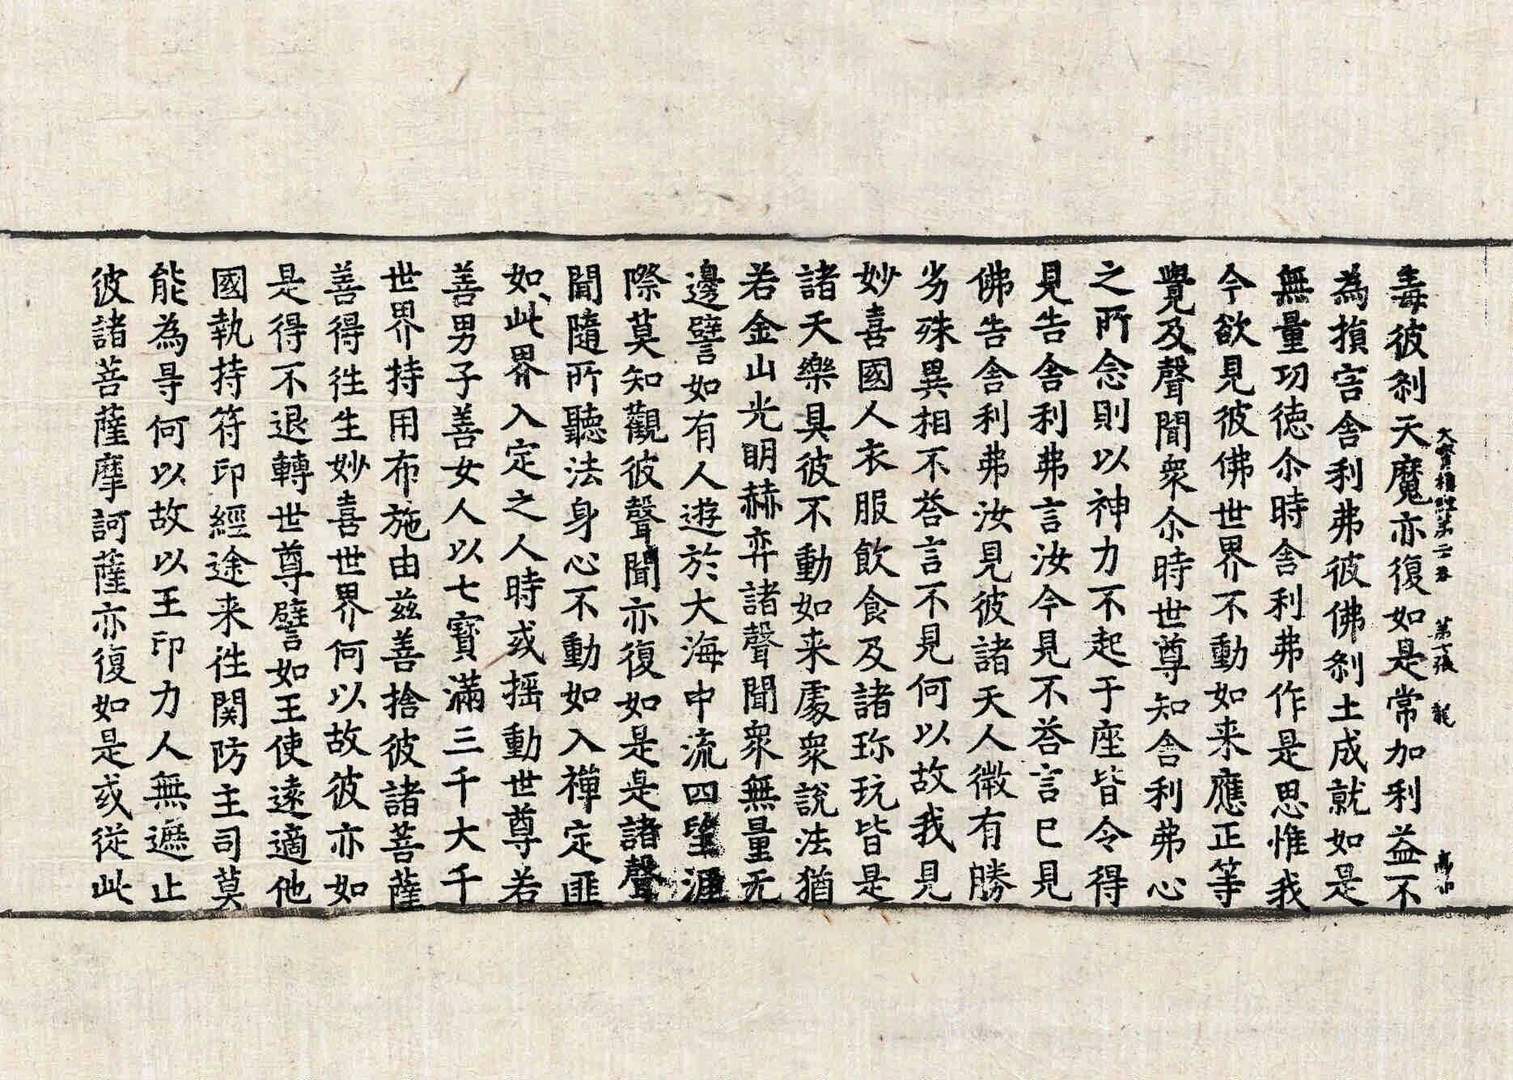 大寶積經第二十卷 第十張 龍
毒彼刹天魔亦復如是常加利益不
為損害舍利弗彼佛刹土成就如是
無量功徳尒時舍利弗作是思惟我
今欲見彼佛世界不動如来應正等
覺及聲聞衆尒時世尊知舍利弗心
之所念則以神力不起于座皆令得
見告舍利弗言汝今見不荅言已見
佛告舍利弗汝見彼諸天人微有勝
劣殊異相不荅言不見何以故我見
妙喜國人衣服飲食及諸珎玩皆是
諸天樂具彼不動如来處衆說法猶
若金山光明赫弈諸聲聞衆無量无
邊譬如有人遊於大海中流四望涯
際莫知觀彼聲聞亦復如是是諸聲
聞隨所聽法身心不動如入禪定匪
如此界入定之人時或摇動世尊若
善男子善女人以七寳滿三千大千
世界持用布施由兹善捨彼諸菩薩
善得徃生妙喜世界何以故彼亦如
是得不退轉世尊譬如王使遠適他
國執持符印經途来徃関防主司莫
能為㝵何以故以王印力人無遮止
彼諸菩薩摩訶薩亦復如是或從此